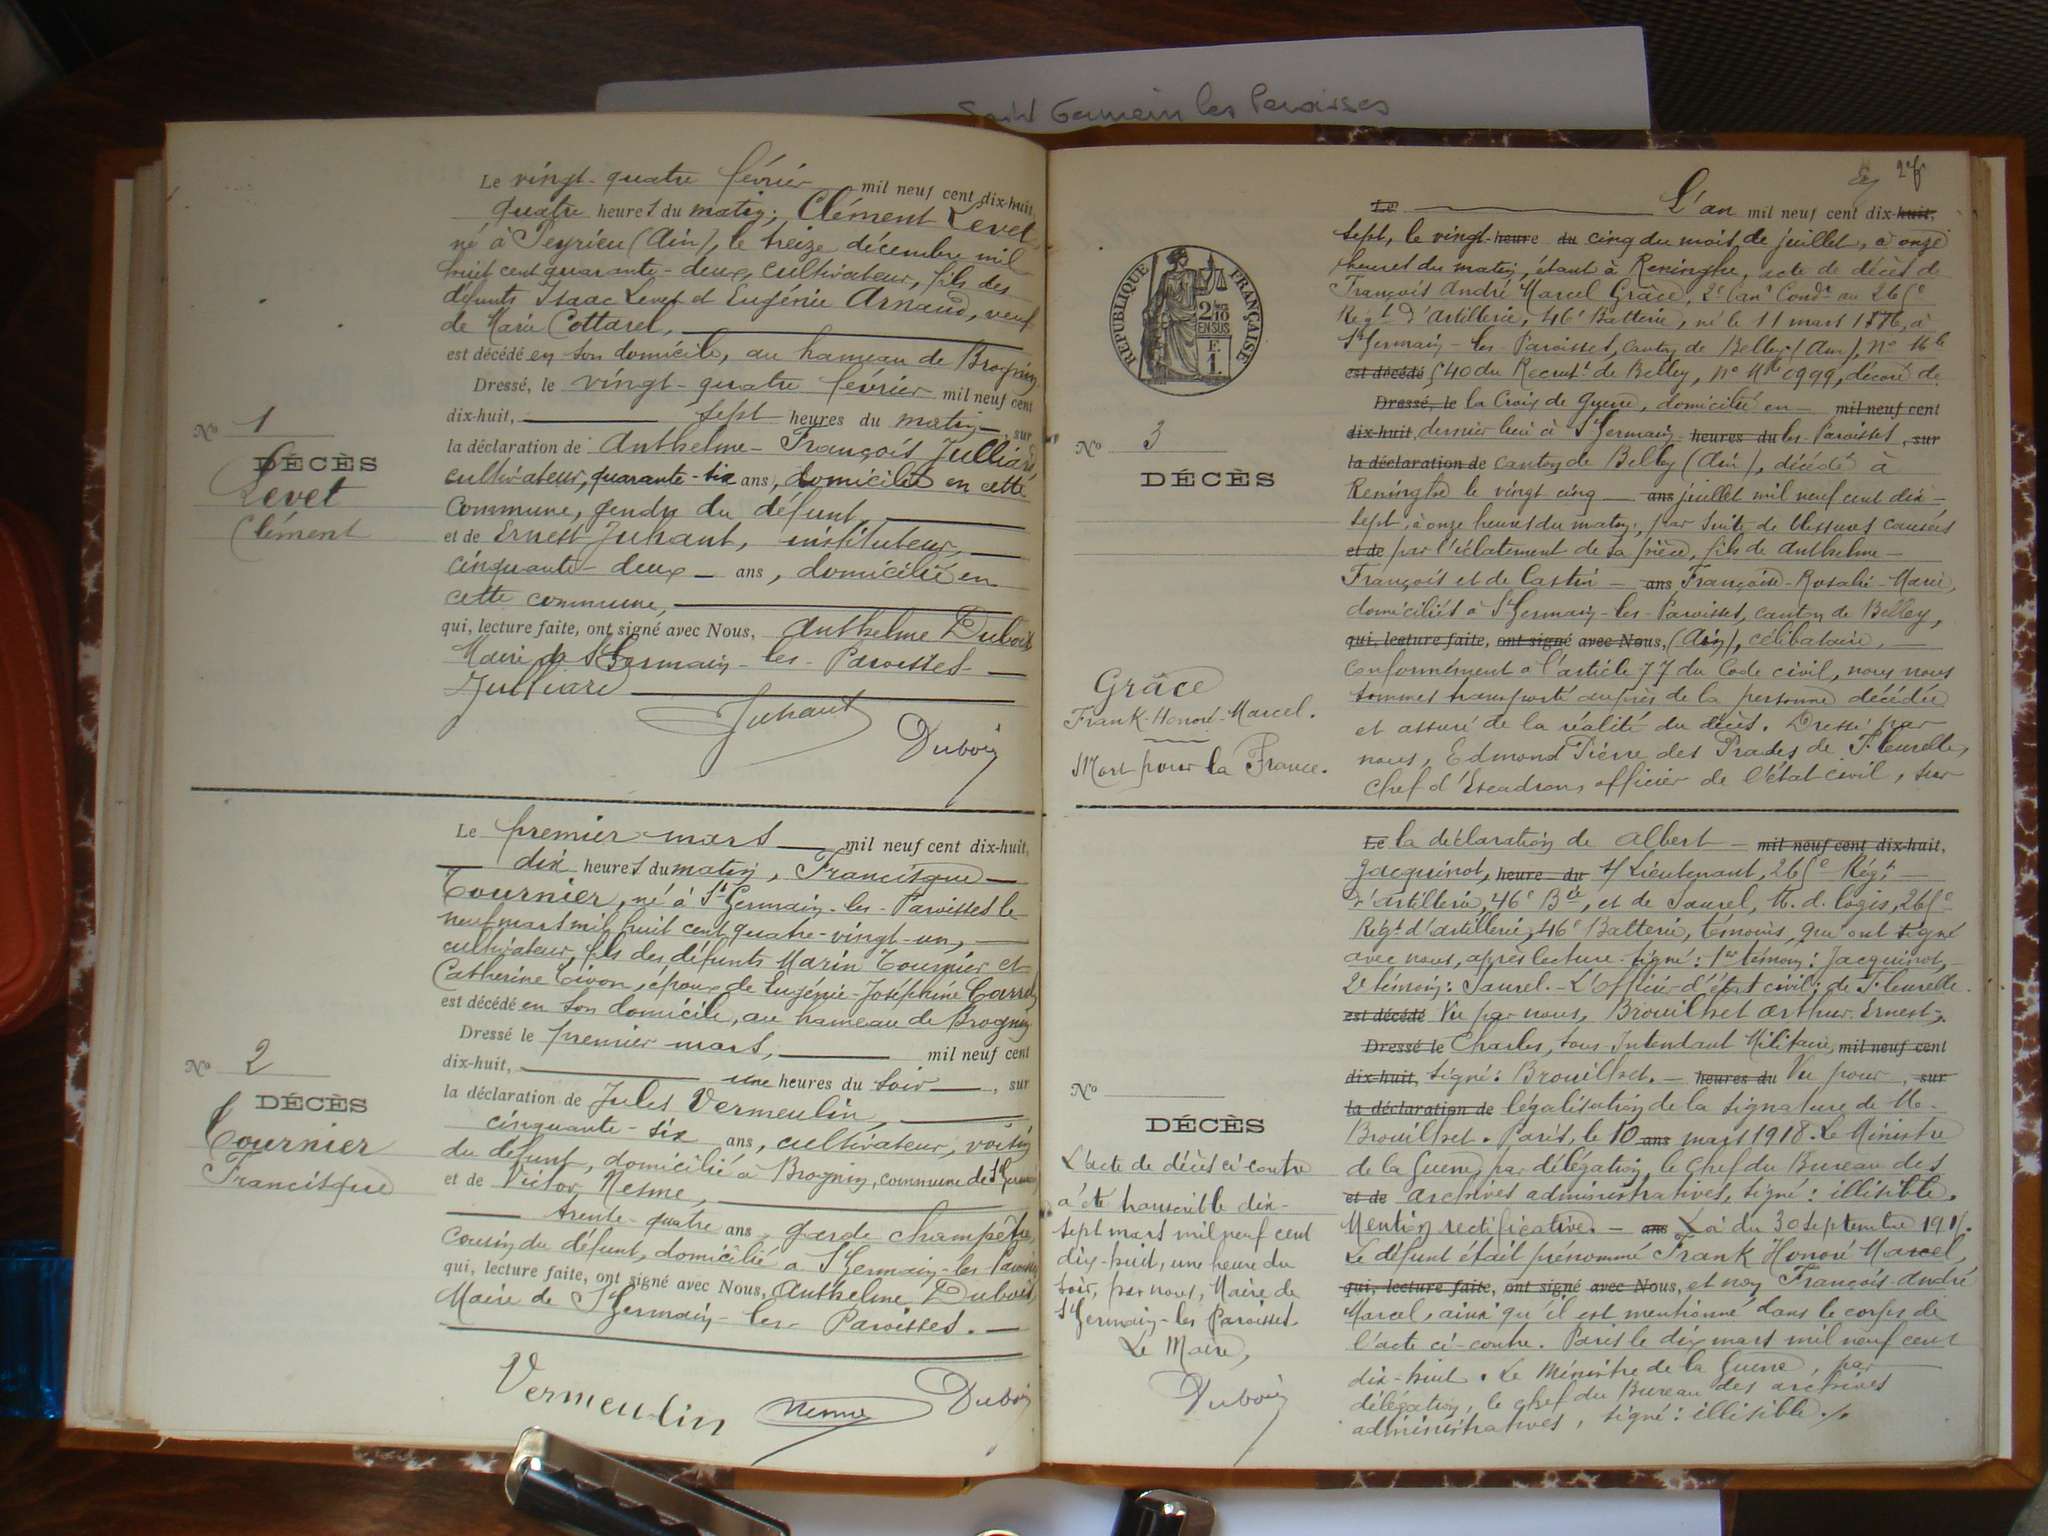 Saint Germain les Paroisses
Le vingt-quatre février mil neuf cent dix-huit,
quatre heures du matin, Clément Levet
né à Peyrieu (Ain), le treize décembre mil
huit cent quarante-deux, cultivateur, fils des
défunts Isaac Levet et Eugénie Arnaud, veuf
de Marie Cottarel,
est décédé en son domicile, au hameau de Brognin
Dressé, le vingt-quatre février mil neuf cent
dix-huit, sept heures du matin, sur
la déclaration de Anthelme-François Julliard,
cultivateur, quarante-six ans, domicilié en cette
commune, gendre du défunt,
et de Ernest Juhant, instituteur,
cinquante-deux ans, domicilié en
cette commune,
qui, lecture faite, ont signé avec Nous, Anthelme Dubois
Maire de St Germain-les-Paroisses
Julliard
Juhant
Dubois
No 1
DÉCÈS
Levet
Clément
Le premier mars mil neuf cent dix-huit,
dix heures du matin, Francisque
Tournier, né à St Germain-les-Paroisses le
neuf mars mil huit cent quatre-vingt-un,
cultivateur, fils des défunts Marin Tournier et
Catherine Tivon, époux de Eugénie-Joséphine Carrel
est décédé en son domicile, au hameau de Brognin
Dressé le premier mars, mil neuf cent
dix-huit, une heures du soir, sur
la déclaration de Jules Vermeulin,
cinquante-six ans, cultivateur, voisin
du défunt, domicilié à Brognin, commune de St Germain
et de Victor Nesme,
trente-quatre ans, garde champêtre,
cousin du défunt, domicilié à St Germain-les-Paroisses
qui, lecture faite, ont signé avec Nous, Anthelme Dubois,
Maire de St Germain-les-Paroisses.
Vermeulin Nesme Dubois
No 2
DÉCÈS
Tournier
Francisque
2
RÉPUBLIQUE FRANÇAISE
2/10
EN SUS
F.
1.
Le L'an mil neuf cent dix-huit,
sept, le vingt-heure du cinq du mois de juillet, à onze
heures du matin, étant à Reninghe, acte de décès de
François André Marcel Grâce, 2e Canr Condr au 265e
Régt d'Artillerie, 46e Batterie, né le 11 mars 1886, à
St Germain-les-Paroisses, canton de Belley (Ain), no Mle
est décédé 540 du Recrutt de Belley, no Mle 0999, décoré de
Dressé, le la Croix de Guerre, domicilié en mil neuf cent
dix-huit, dernier lieu à St Germain heures du les-Paroisses, sur
la déclaration de canton de Belley (Ain), décédé à
Reninghe le vingt cinq ans juillet mil neuf cent dix-
sept, à onze heures du matin, par suite de blessures causées
et de par l'éclatement de sa pièce, fils de Anthelme-
François et de Castin ans Françoise-Rosalie-Marie,
domiciliés à St Germain-les-Paroisses, canton de Belley,
qui, lecture faite, ont signé avec Nous, (Ain), célibataire,
Conformément à l'article 77 du Code civil, nous nous
sommes transporté auprès de la personne décédée
et assuré de la réalité du décès. Dressé par
nous, Edmond Pierre des Prades de Fleurelle,
Chef d'Escadron, officier de l'état civil, sur
No 3
DÉCÈS
Grâce
Frank-Honoré-Marcel.
Mort pour la France.
Le la déclaration de Albert mil neuf cent dix-huit,
Jacquinot, heure du S/Lieutenant, 265e Régt
d'artillerie, 46e Bie, et de Saurel, M. d. logis, 265e
Régt d'artillerie, 46e Batterie, témoins, qui ont signé
avec nous, après lecture. Signé: 1er témoin: Jacquinot,
2e témoin: Saurel. L'Officier d'état civil: de Fleurelle.
est décédé Vu par nous, Brouilhet Arthur-Ernest-
Dressé le Charles, Sous-Intendant Militaire, mil neuf cent
dix-huit, signé: Brouilhet. heures du Vu pour, sur
la déclaration de légalisation de la signature de M.
Brouilhet. Paris, le 10 ans mars 1918. Le Ministre
de la Guerre, par délégation, le Chef du Bureau des
et de archives administratives, signé: illisible.
Mention rectificative. ans Loi du 30 septembre 1915.
Le défunt était prénommé Frank Honoré Marcel
qui, lecture faite, ont signé avec Nous, et non François-André
Marcel, ainsi qu'il est mentionné dans le corps de
l'acte ci-contre. Paris le dix mars mil neuf cent
dix-huit. Le Ministre de la Guerre, par
délégation, le chef du Bureau des archives
administratives, signé: illisible.
No
DÉCÈS
L'acte de décès ci-contre
a été transcrit le dix-
sept mars mil neuf cent
dix-huit, une heure du
soir, par nous, Maire de
St Germain-les Paroisses.
Le Maire,
Dubois